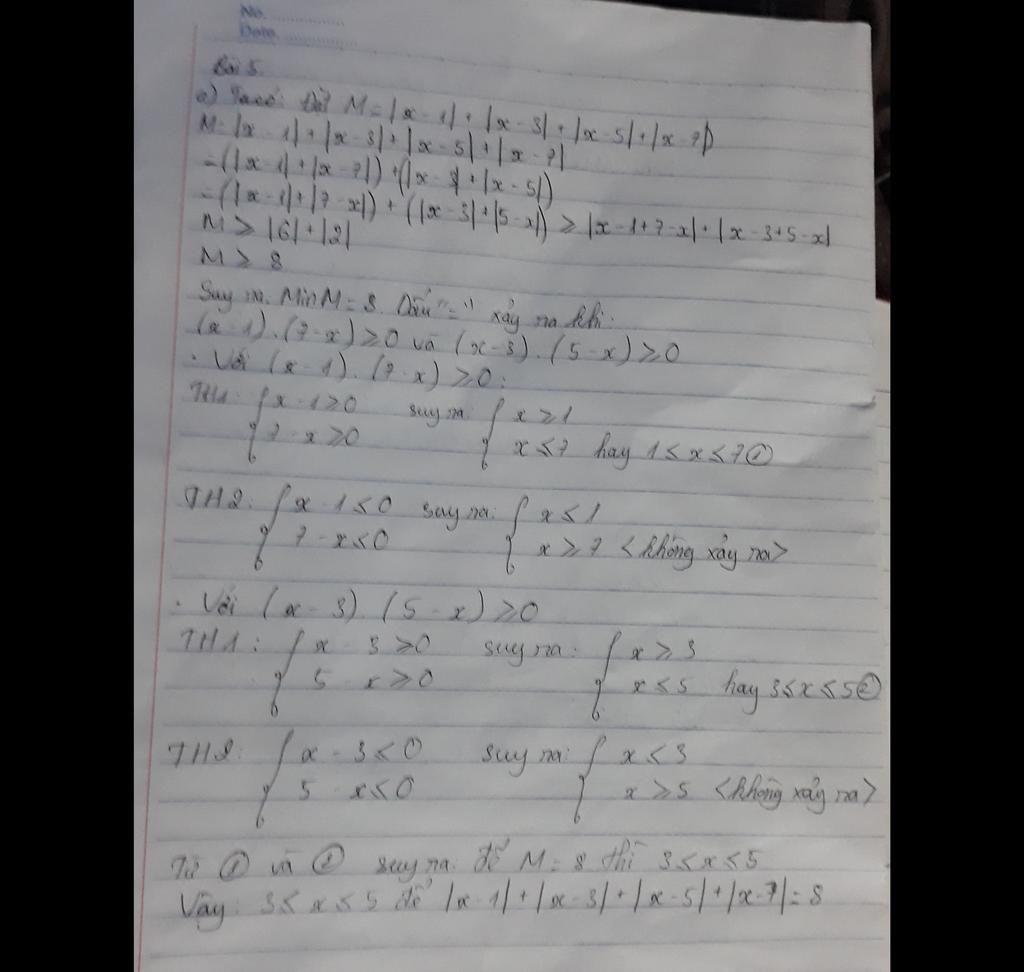 No. ..............
Date ..............
Bài 5.
a) Ta có: Đặt M = |x - 1| + |x - 3| + |x - 5| + |x - 7|
M = |x - 1| + |x - 3| + |x - 5| + |x - 7|
= (|x - 1| + |x - 7|) + (|x - 3| + |x - 5|)
= (|x - 1| + |7 - x|) + (|x - 3| + |5 - x|) ≥ |x - 1 + 7 - x| + |x - 3 + 5 - x|
M ≥ |6| + |2|
M ≥ 8
Suy ra: Min M = 8. Dấu "=" xảy ra khi:
(x - 1).(7 - x) ≥ 0 và (x - 3).(5 - x) ≥ 0
. Với (x - 1).(7 - x) ≥ 0:
TH1: { x - 1 ≥ 0 suy ra: { x ≥ 1
7 - x ≥ 0 x ≤ 7 hay 1 ≤ x ≤ 7 ①
TH2: { x - 1 ≤ 0 suy ra: { x ≤ 1
7 - x ≤ 0 x ≥ 7 <không xảy ra>
. Với (x - 3).(5 - x) ≥ 0
TH1: { x - 3 ≥ 0 suy ra: { x ≥ 3
5 - x ≥ 0 x ≤ 5 hay 3 ≤ x ≤ 5 ②
TH2: { x - 3 < 0 suy ra: { x < 3
5 - x ≤ 0 x ≥ 5 <không xảy ra>
Từ ① và ② suy ra: để M = 8 thì 3 ≤ x ≤ 5
Vậy: 3 ≤ x ≤ 5 để |x - 1| + |x - 3| + |x - 5| + |x - 7| = 8